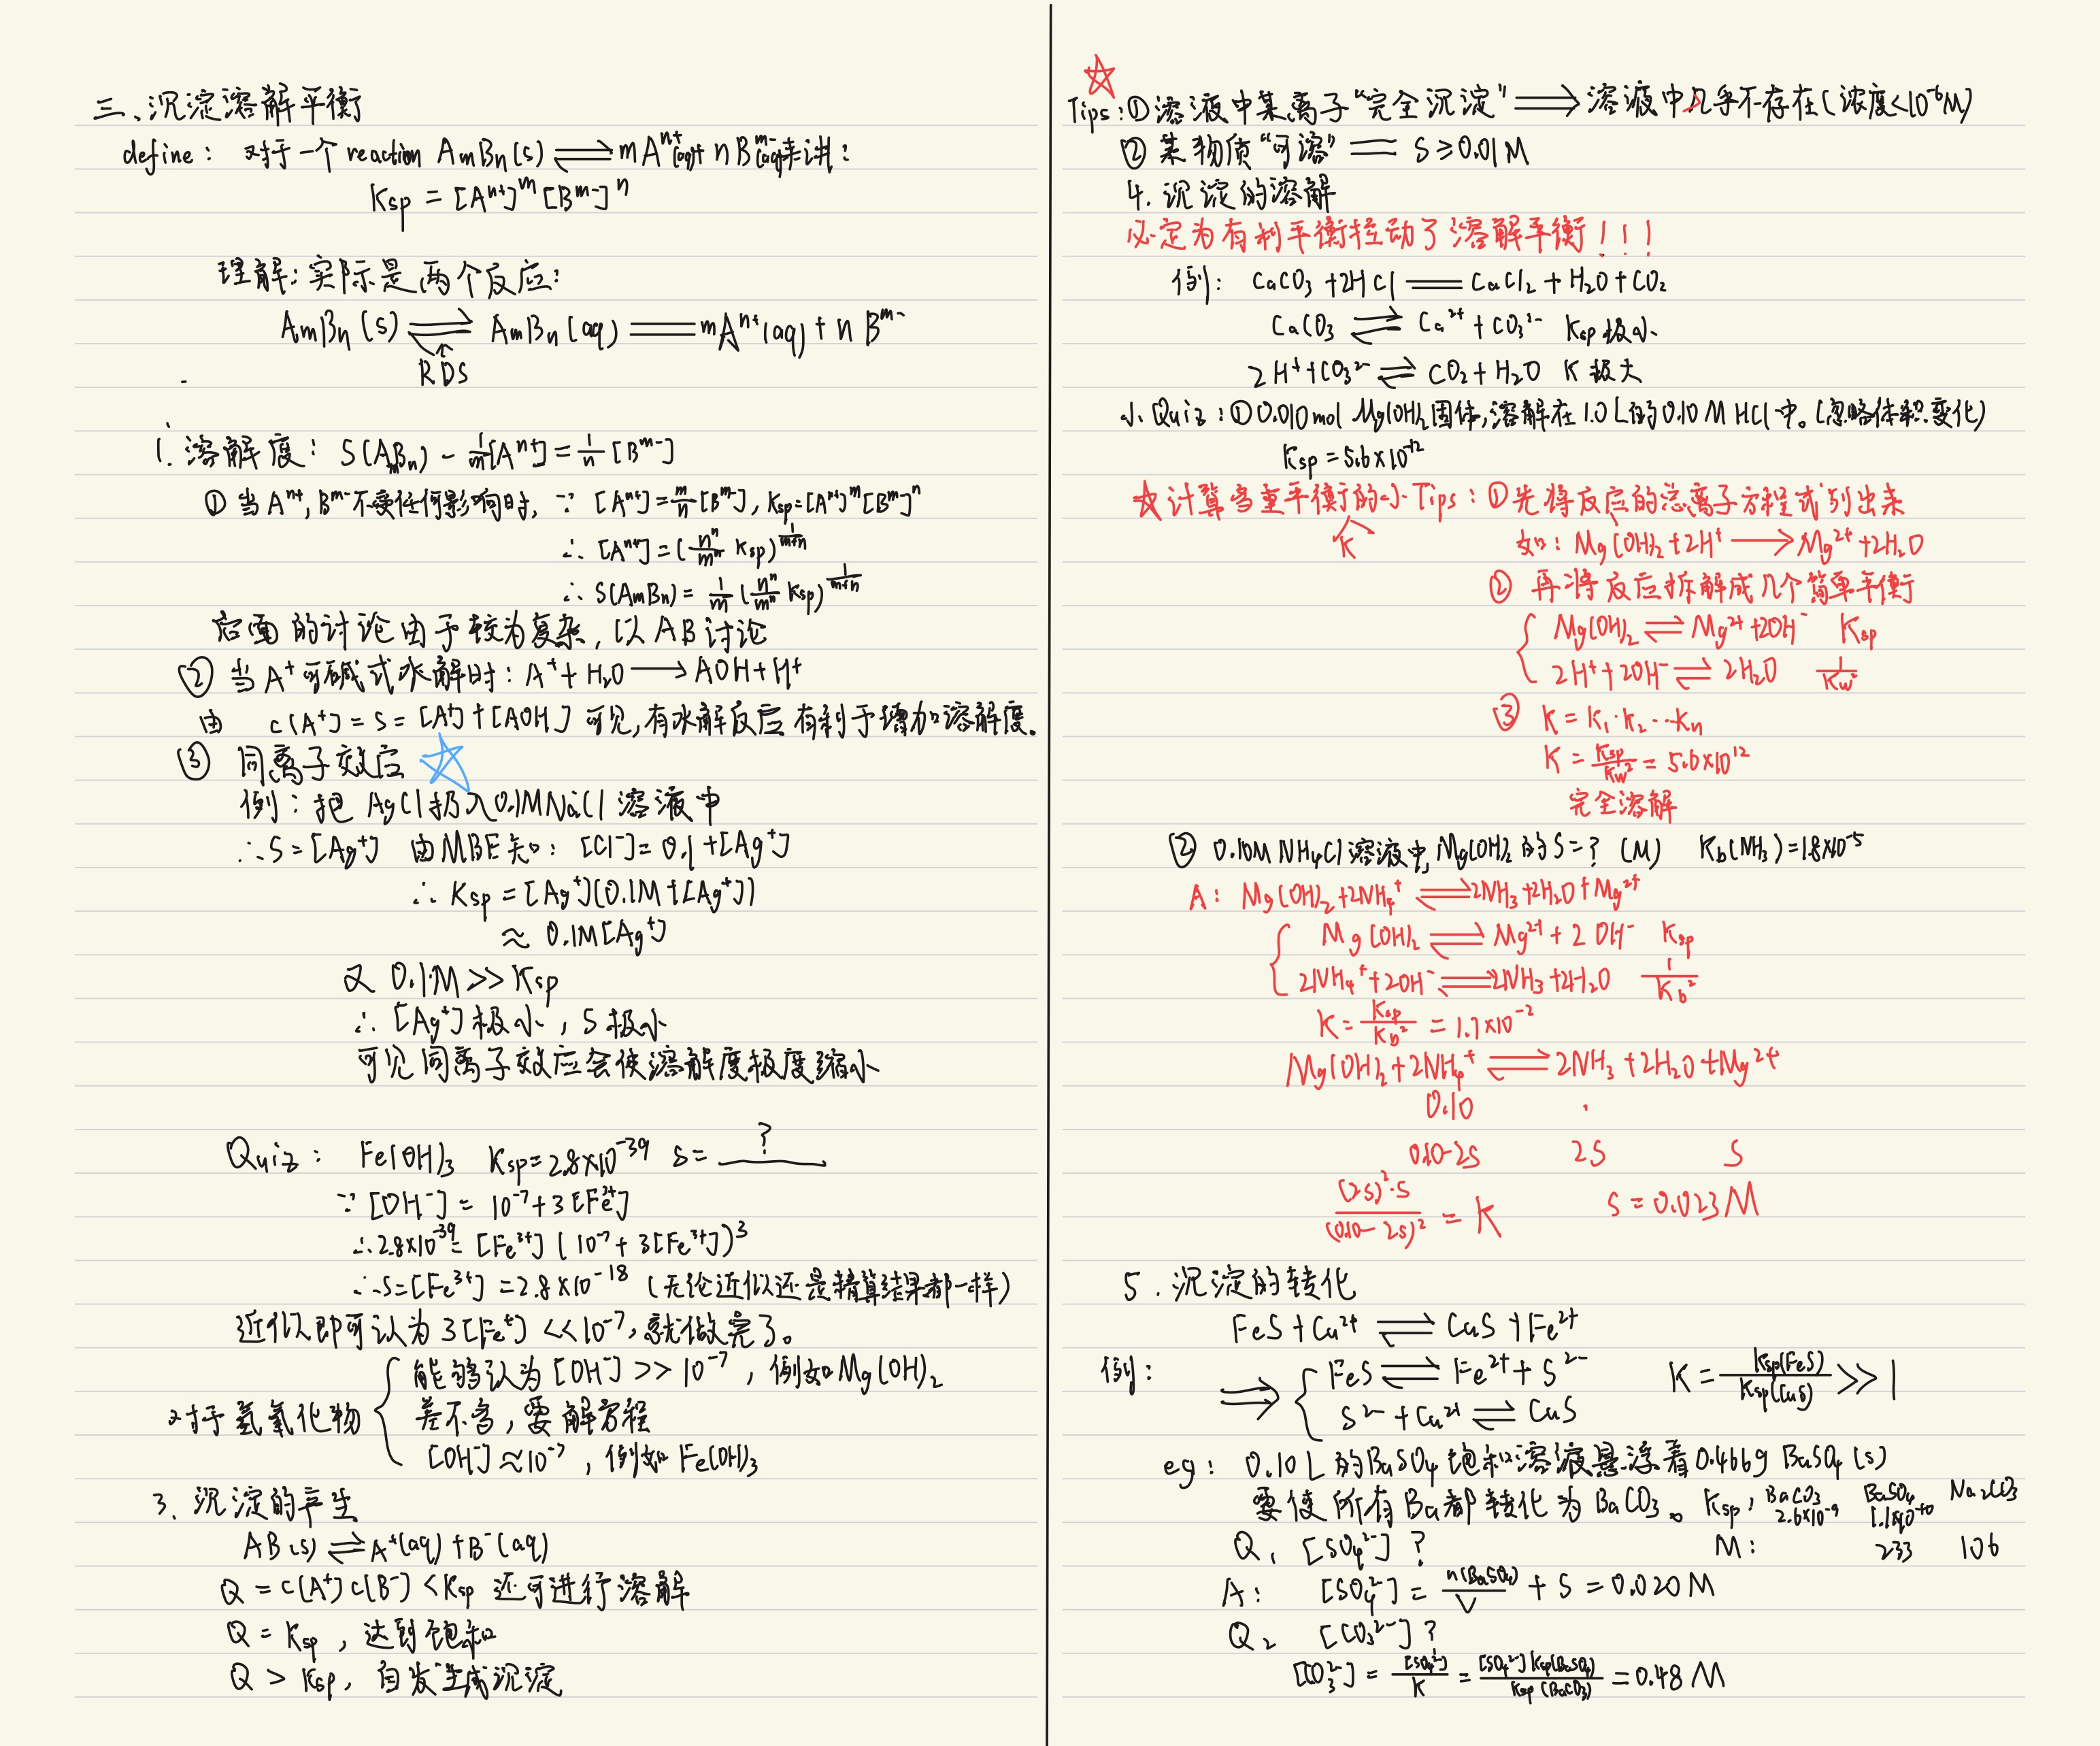 三、沉淀溶解平衡
define: 对于一个 reaction AmBn(s) ⇌ mAⁿ⁺(aq) + nBᵐ⁻(aq)来讲:
Ksp = [Aⁿ⁺]ᵐ [Bᵐ⁻]ⁿ
理解: 实际是两个反应:
AmBn (s) ⇌ AmBn (aq) == mAⁿ⁺(aq) + n Bᵐ⁻
↑
RDS
1. 溶解度: S(AmBn) - 1/m[Aⁿ⁺] = 1/n [Bᵐ⁻]
① 当Aⁿ⁺, Bᵐ⁻不受任何影响时, ∵ [Aⁿ⁺] = m/n [Bᵐ⁻], Ksp = [Aⁿ⁺]ᵐ[Bᵐ⁻]ⁿ
∴ [Aⁿ⁺] = (nⁿ/mⁿ Ksp)^(1/(m+n))
∴ S(AmBn) = 1/m (nⁿ/mⁿ Ksp)^(1/(m+n))
后面的讨论由于较为复杂, 以AB讨论
② 当A⁺可碱式水解时: A⁺ + H₂O → AOH + H⁺
由 c(A⁺) = S = [A⁺] + [AOH] 可见, 有水解反应有利于增加溶解度。
③ 同离子效应 ☆
例: 把 AgCl 扔入0.1M NaCl 溶液中
∴ S = [Ag⁺] 由MBE知: [Cl⁻] = 0.1 + [Ag⁺]
∴ Ksp = [Ag⁺](0.1M + [Ag⁺])
≈ 0.1M[Ag⁺]
又 0.1M >> Ksp
∴ [Ag⁺]极小, S极小
可见同离子效应会使溶解度极度缩小
Quiz: Fe(OH)₃ Ksp = 2.8×10⁻³⁹ S = ?
∵ [OH⁻] = 10⁻⁷ + 3[Fe³⁺]
∴ 2.8×10⁻³⁹ = [Fe³⁺] (10⁻⁷ + 3[Fe³⁺])³
∴ S = [Fe³⁺] = 2.8×10⁻¹⁸ (无论近似还是精算结果都一样)
近似即可认为 3[Fe³⁺] << 10⁻⁷, 就做完了。
对于氢氧化物 { 能够认为 [OH⁻] >> 10⁻⁷, 例如Mg(OH)₂
差不多, 要解方程
[OH⁻] ≈ 10⁻⁷, 例如 Fe(OH)₃
3. 沉淀的产生
AB(s) ⇌ A⁺(aq) + B⁻(aq)
Q = c(A⁺) c(B⁻) < Ksp 还可进行溶解
Q = Ksp, 达到饱和
Q > Ksp, 自发生成沉淀
☆
Tips: ① 溶液中某离子“完全沉淀” ⟹ 溶液中几乎不存在(浓度<10⁻⁶M)
② 某物质“可溶” == S ≥ 0.01M
4. 沉淀的溶解
必定为有利平衡拉动了溶解平衡!!!
例: CaCO₃ + 2HCl == CaCl₂ + H₂O + CO₂
CaCO₃ ⇌ Ca²⁺ + CO₃²⁻ Ksp极小
2H⁺ + CO₃²⁻ ⇌ CO₂ + H₂O K极大
小Quiz: ① 0.010mol Mg(OH)₂固体, 溶解在1.0L的0.10M HCl中。(忽略体积变化)
Ksp = 5.6×10⁻¹²
☆计算多重平衡的小Tips: ① 先将反应的总离子方程式列出来
K
如: Mg(OH)₂ + 2H⁺ → Mg²⁺ + 2H₂O
② 再将反应拆解成几个简单平衡
{ Mg(OH)₂ ⇌ Mg²⁺ + 2OH⁻ Ksp
2H⁺ + 2OH⁻ ⇌ 2H₂O 1/Kw²
③ K = K₁·K₂···Kn
K = Ksp/Kw² = 5.6×10¹²
完全溶解
② 0.10M NH₄Cl溶液中, Mg(OH)₂的S = ? (M) Kb(NH₃) = 1.8×10⁻⁵
A: Mg(OH)₂ + 2NH₄⁺ ⇌ 2NH₃ + 2H₂O + Mg²⁺
{ Mg(OH)₂ ⇌ Mg²⁺ + 2OH⁻ Ksp
2NH₄⁺ + 2OH⁻ ⇌ 2NH₃ + 2H₂O 1/Kb²
K = Ksp/Kb² = 1.7×10⁻²
Mg(OH)₂ + 2NH₄⁺ ⇌ 2NH₃ + 2H₂O + Mg²⁺
0.10
0.10-2S 2S S
(2S)²·S/(0.10-2S)² = K S = 0.023M
5. 沉淀的转化
FeS + Cu²⁺ ⇌ CuS + Fe²⁺
例: ⟹ { FeS ⇌ Fe²⁺ + S²⁻ K = Ksp(FeS)/Ksp(CuS) >> 1
S²⁻ + Cu²⁺ ⇌ CuS
eg: 0.10L的BaSO₄饱和溶液悬浮着0.466g BaSO₄(s)
要使所有Ba都转化为BaCO₃。 Ksp: BaCO₃ 2.6×10⁻⁹ BaSO₄ 1.1×10⁻¹⁰ Na₂CO₃
Q₁ [SO₄²⁻]? M: 233 106
A: [SO₄²⁻] = n(BaSO₄)/V + S = 0.020M
Q₂ [CO₃²⁻]?
[CO₃²⁻] = [SO₄²⁻]/K = [SO₄²⁻]Ksp(BaSO₄)/Ksp(BaCO₃) = 0.48M